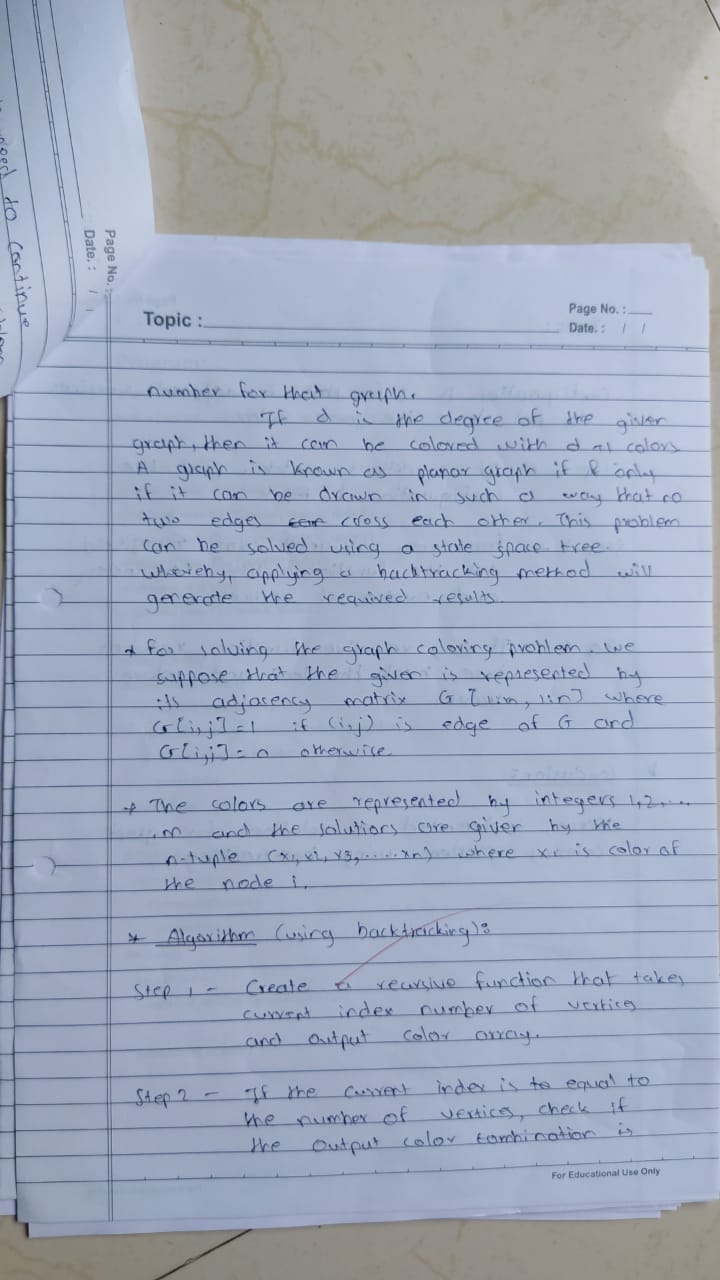 need to continue
Page No. :
Date. : / /
Topic :
Page No. :
Date. : / /
number for that graph.
If d is the degree of the given
graph, then it can be colored with d +1 colors
A graph is known as planar graph if & only
if it can be drawn in such a way that no
two edges cross each other. This problem
can be solved using a state space tree
whereby, applying a backtracking method will
generate the required results.
* For solving the graph coloring problem, we
suppose that the given is represented by
its adjasency matrix G [1:n, 1:n] where
G[i,j]=1 if (i,j) is edge of G and
G[i,j]=0 otherwise.
* The colors are represented by integers 1,2,...
,m and the solutions are given by the
n-tuple (x1, x2, x3, ..... xn) where xi is color of
the node i.
* Algorithm (using backtracking):
Step 1 - Create a recursive function that takes
current index number of vertices
and output color array.
Step 2 - If the current index is to equal to
the number of vertices, check if
the output color combination is
For Educational Use Only